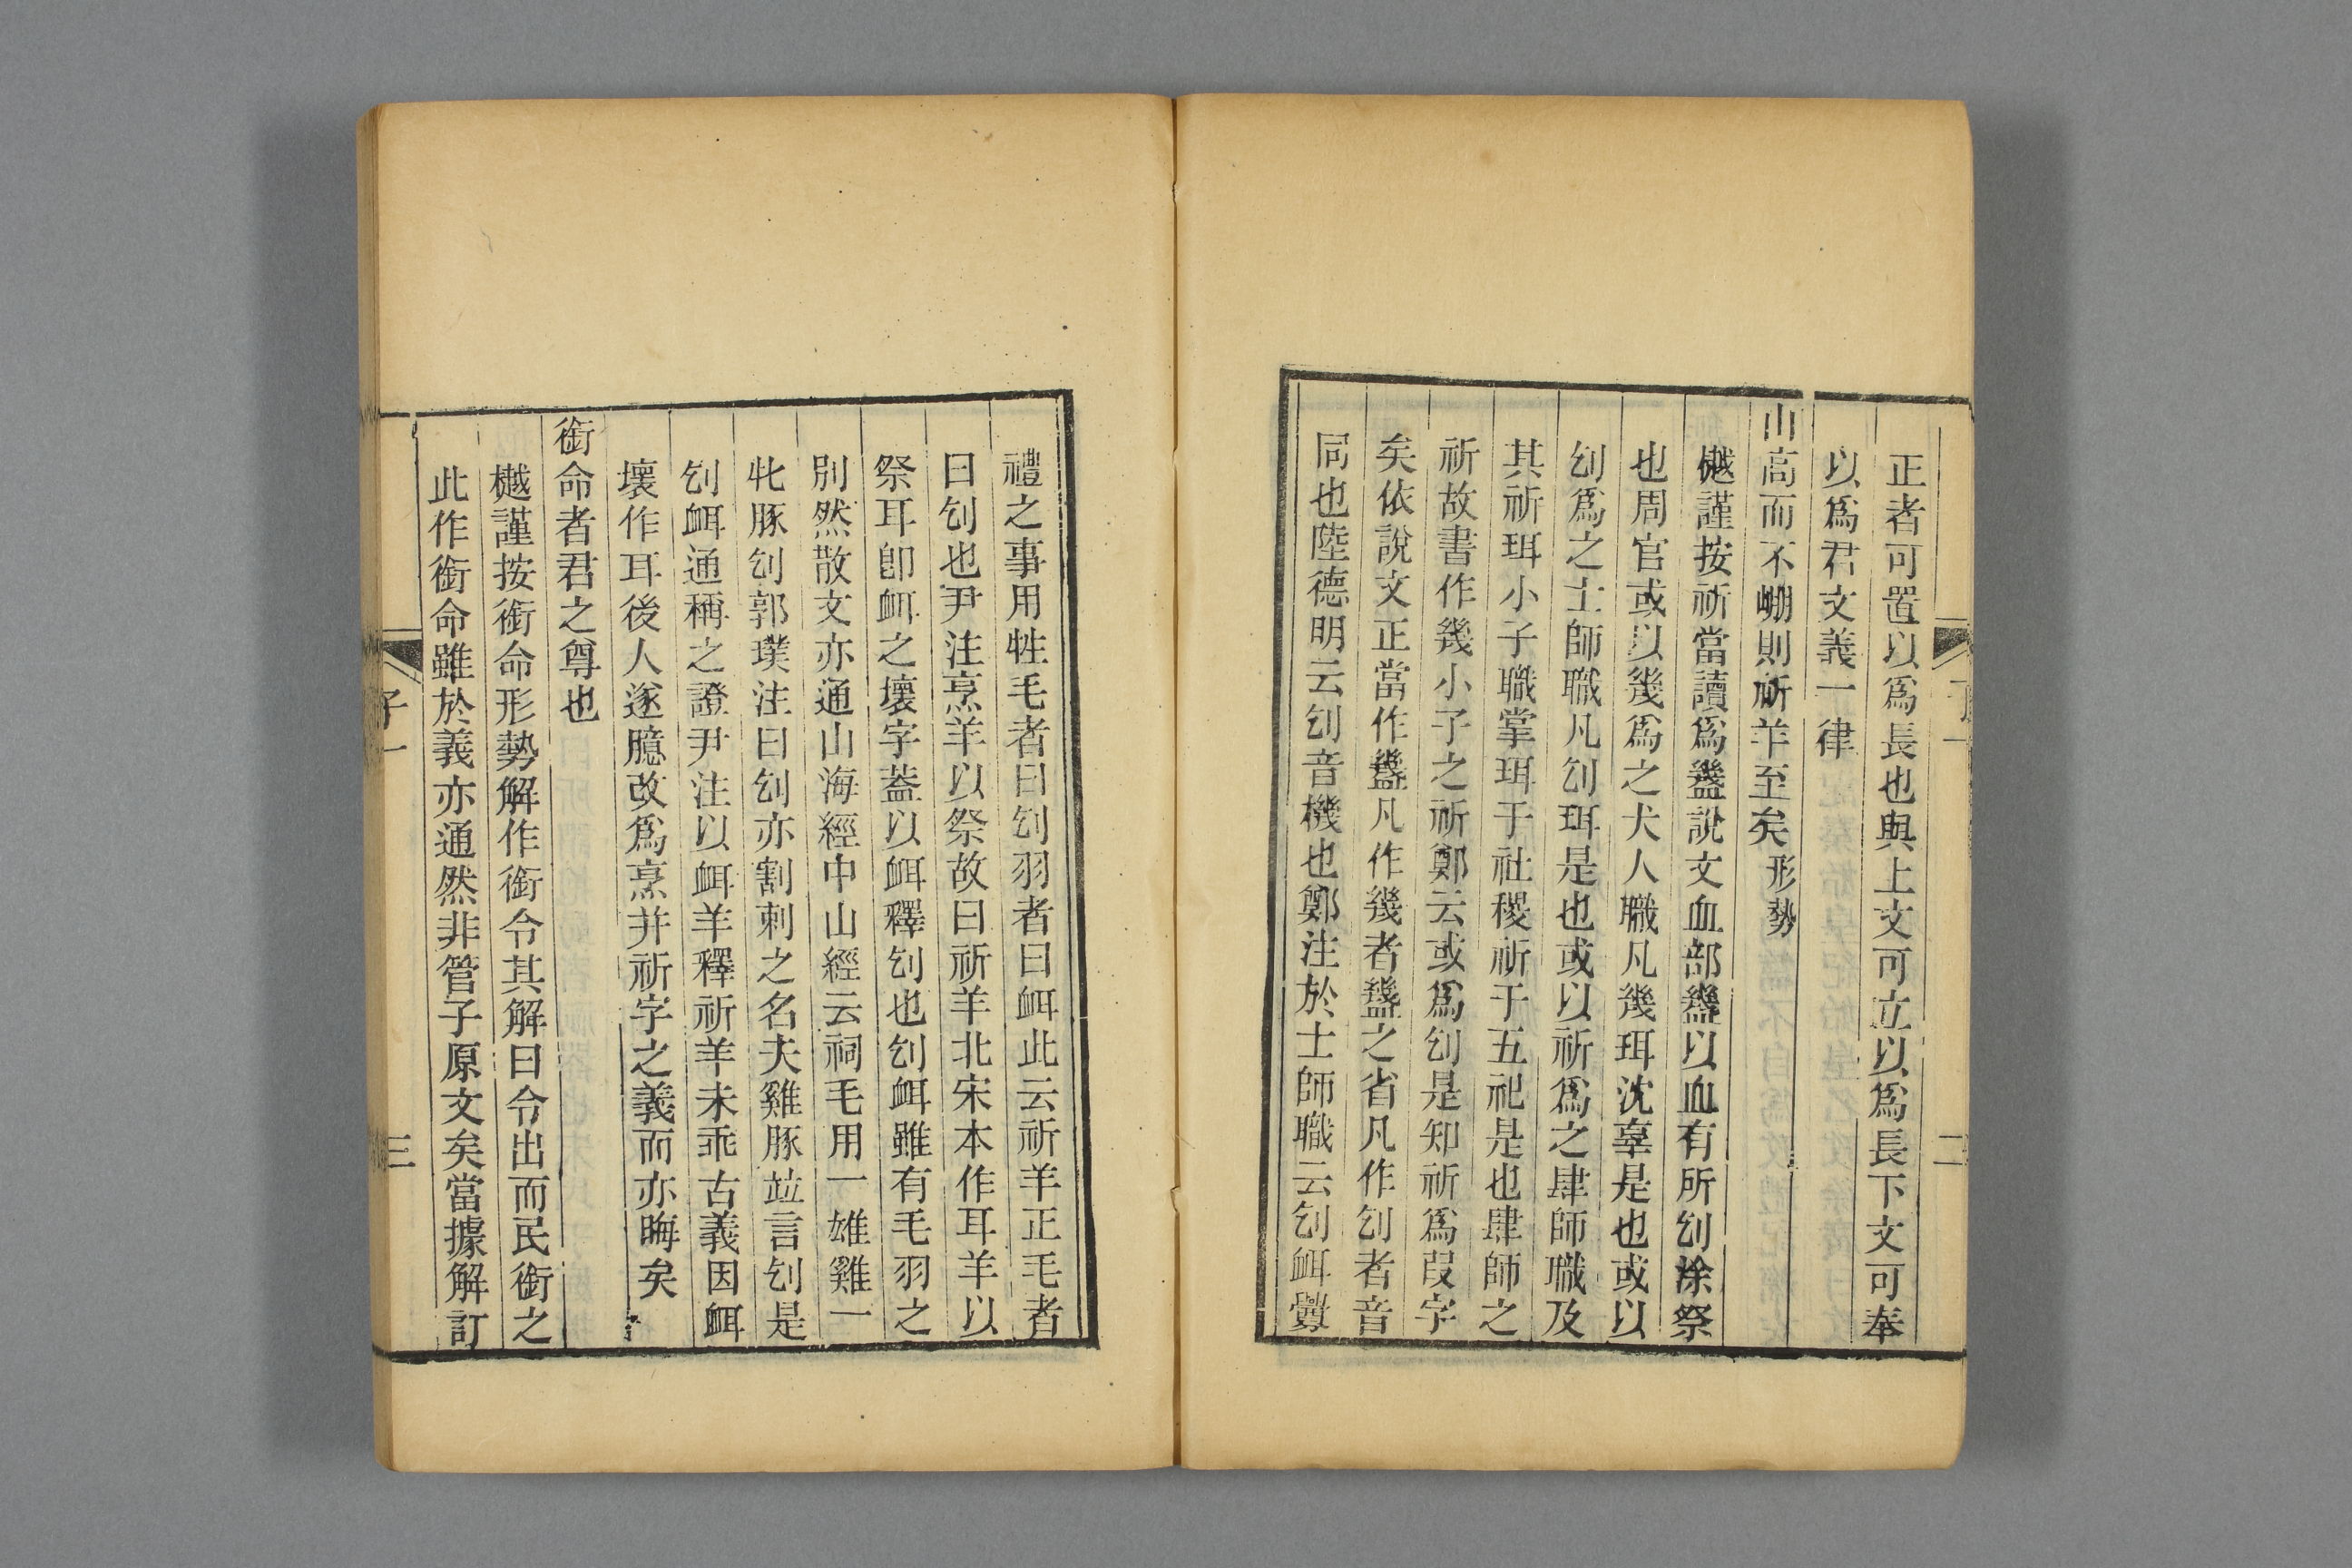 正者可置以爲長也與上文可立以爲長下文可奉
以爲君文義一律
山高而不崩則祈羊至矣形勢
樾謹按祈當讀爲𧗓說文血部𧗓以血有所刉涂祭
也周官或以幾爲之犬人職凡幾珥沈辜是也或以
刉爲之士師職凡刉珥是也或以祈爲之肆師職及
其祈珥小子職掌珥于社稷祈于五祀是也肆師之
祈故書作幾小子之祈鄭云或爲刉是知祈爲叚字
矣依說文正當作𧗓凡作幾者𧗓之省凡作刉者音
同也陸德明云刉音機也鄭注於士師職云刉衈釁
禮之事用牲毛者曰刉羽者曰衈此云祈羊正毛者
曰刉也尹注烹羊以祭故曰祈羊北宋本作耳羊以
祭耳卽衈之壞字葢以衈釋刉也刉衈雖有毛羽之
別然散文亦通山海經中山經云祠毛用一雄雞一
牝豚刉郭璞注曰刉亦割刺之名夫雞豚竝言刉是
刉衈通稱之證尹注以衈羊釋祈羊未乖古義因衈
壞作耳後人遂臆改爲烹并祈字之義而亦晦矣
銜命者君之尊也
樾謹按銜命形勢解作銜令其解曰令出而民銜之
此作銜命雖於義亦通然非管子原文矣當據解訂
子一
三
二